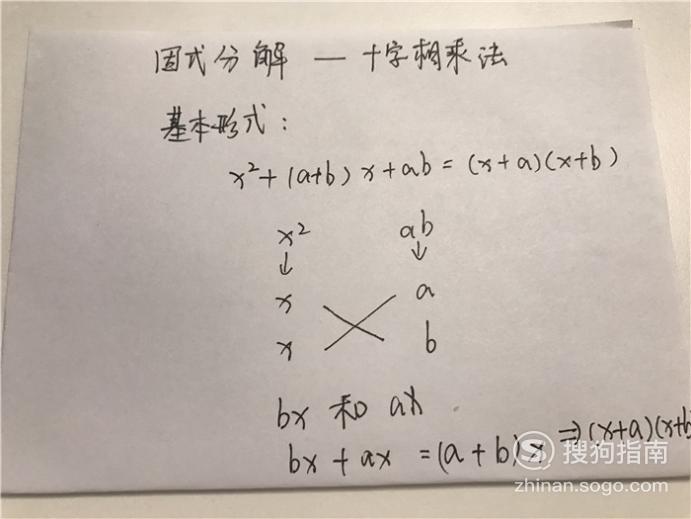 因式分解 — 十字相乘法
基本形式：
x²+(a+b)x+ab=(x+a)(x+b)
x² ab
↓ ↓
x a
x b
bx 和 ax
bx+ax=(a+b)x ⇒(x+a)(x+b
搜狗指南
zhinan.sogo.com